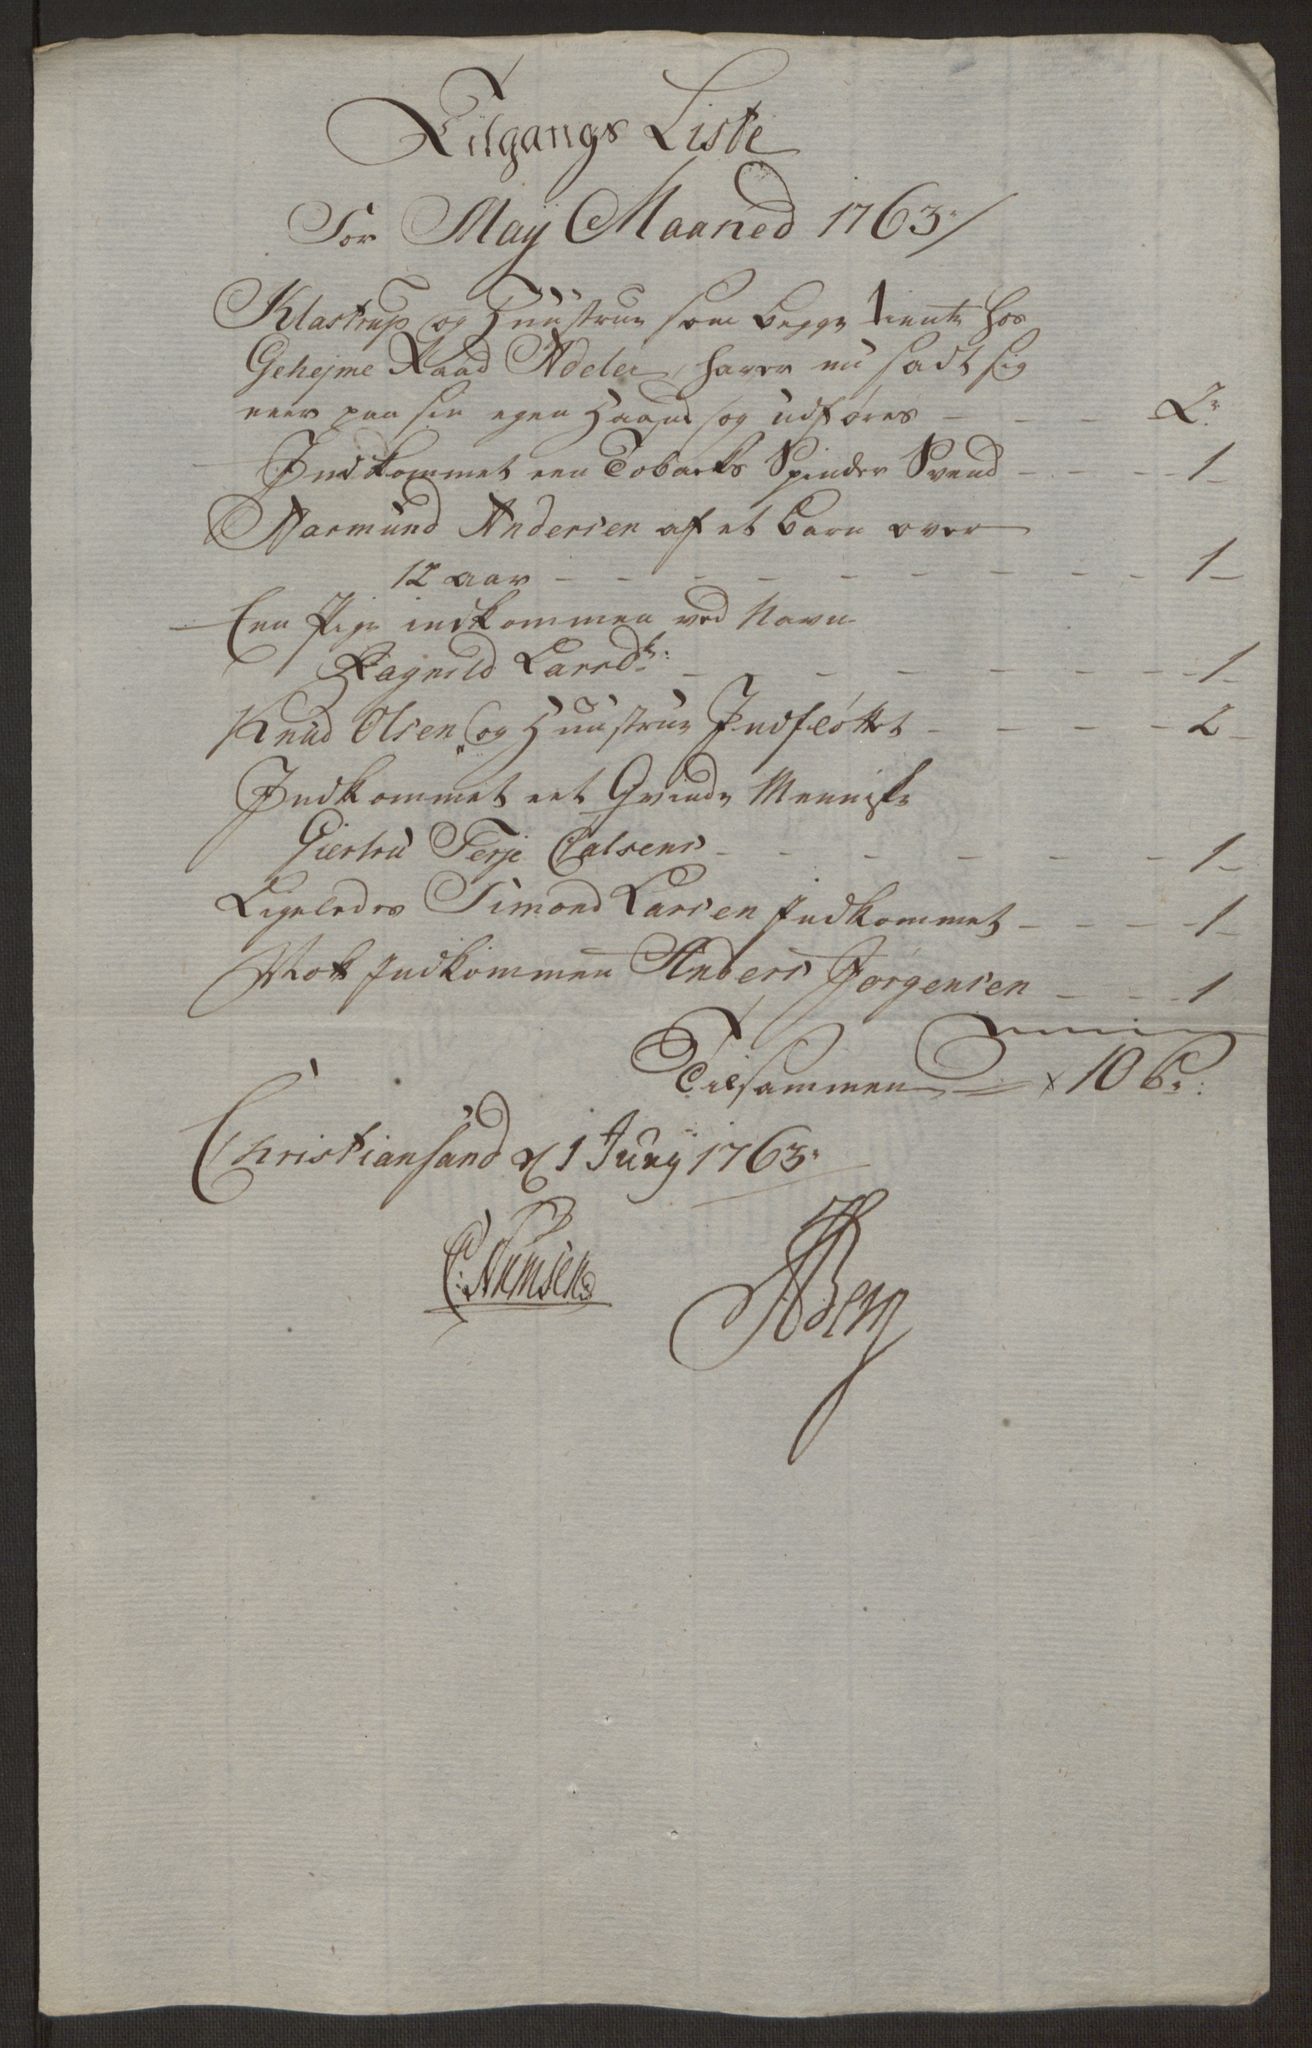 Tilgangs Liste
For Maÿ Maaned 1763 /
Klastrup og Huustrue som begge tiente hos
Gehejme Raad Adeler, haver nu sadt sig
neer paa sin egen Haand og udføres - - - 2
Indkommet een Tobacks Spinder Svend - - - - 1
Aarmund Andersen af et barn over
12 aar - - - - - - - - 1
Een Pige indkommen ved Navn
Ragnild Larsd: - - - - - - 1
Knud Olsen og Huustrue Indfløttet - - - - 2
Indkommet eet Qvinde Menniske
Giertru Terje - - - - - - 1
Ligeledes Simond Larsen Indkommet - - - - 1
Nok Indkommen Anders Jørgensen - - - 1
Tilsammen 10
Christiansand d 1 Junÿ 1763